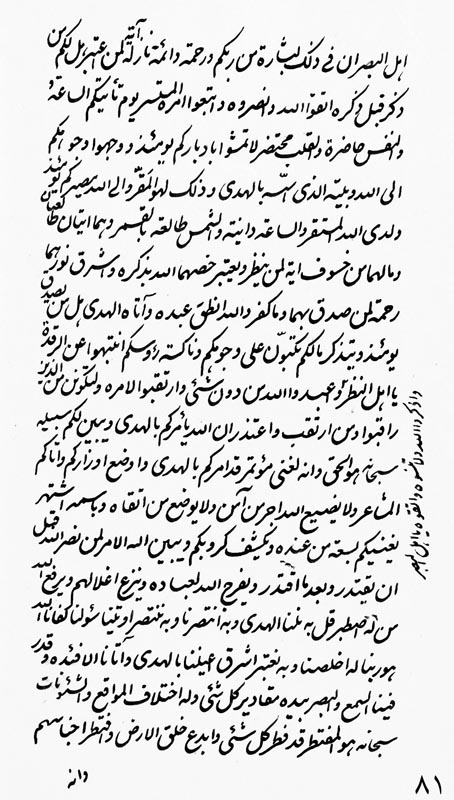 اهل البصران في ذلك لبشارة من ربكم ورحمته دائمة نازلة لمن اعتبر هل لكم من
ذكر قبل ذكره اتقوا الله وانصروه واتبعوا امره المتيسر يوم تأتيكم الساعة
والنفس حاضرة والقلب محتضر لا تمشوا بادباركم يومئذ ووجهوا وجوهكم
الى الله وبليه الذي اليه بالهدى وذلك لهو المقر والى الله مصيركم يومئذ
ولدى الله المستقر والساعة دانية والشمس طالعة بالقمر وهما ايتان
ومالهما من خسوف اية لمن ينظر ويعتبر خصهما الله بذكره واشرق نورهما
رحمة لمن صدق بهما وما كفر والله انطق عبده وآتاه الهدى هل من يصدق
يومئذ ويتذكر مالكم تكبون على وجوهكم وناكسة رؤسكم انتبهوا عن الرقدة
يا اهل النظر واعبدوا الله من دون شئ وارتقبوا الامره ولتكونن من الذين
راقبوا ومن ارتقب واعتذر ان الله يأمركم بالهدى ويبين لكم سبيله
سبحانه هو الحق وانه لغني مؤتمر قد امركم بالهدى واوضع اوزاركم واتاكم
المشاعر ولا يضيع الله اجر من آمن ولا يوضع من اتقاه وباسمه اشتهر
يغنيكم بسعة من عنده ويكشف كروبكم ويبين اله الامر لمن نصر الله قبل
ان يقتدر وبعد ما اقتدر ويفرج الله لعباده وينزع اغلالهم ويرفع الله
من له اصطبر قل به نلنا الهدى وبه انتصرنا وبه نختصر اوتينا سؤلنا كفانا الله
هو ربنا له اخلصنا وبه نعتبر اشرق عيننا بالهدى وآتانا الافئدة وقدر
فينا السمع والبصر بيده مقادير كل شئ وله اختلاف المواقع والشئونات
سبحانه هو المفتطر قد فطر كل شئ وابدع خلق الارض وافتطر اجناسهم
وانه
واذكروا الله ولا تنسوه واتقوه يا اهل البصر
٨١